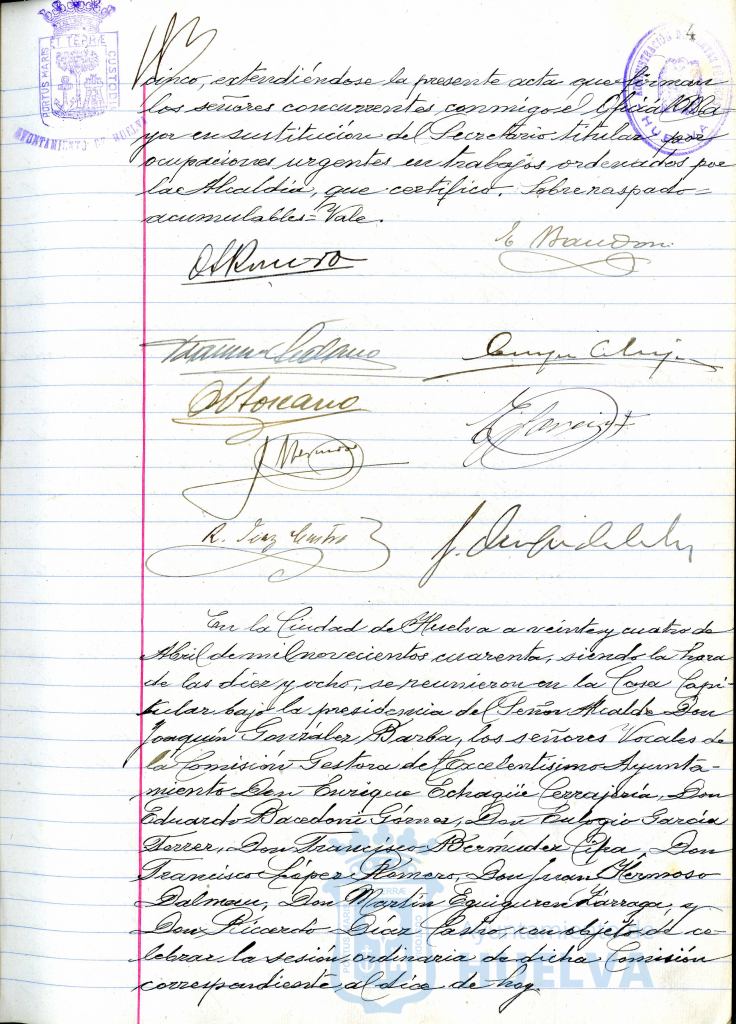 4
PORTUS MARIS
ET TERRÆ
CUSTODIA
AYUNTAMIENTO DE HUELVA
HUELVA
cinco, extendiéndose la presente acta que firman
los señores concurrentes, conmigo el Oficial Ma-
yor en sustitución del Secretario titular, por
ocupaciones urgentes en trabajos ordenados por
la Alcaldía, que certifico. Sobrerraspado=
acumulables= Vale.
R. Díaz Castro
En la Ciudad de Huelva a veinte y cuatro de
Abril de mil novecientos cuarenta, siendo la hora
de las diez y ocho, se reunieron en la Casa Capi-
tular bajo la presidencia del Señor Alcalde Don
Joaquín González Barba, los señores Vocales de
la Comisión Gestora del Excelentísimo Ayunta-
miento Don Enrique Echagüe Cerrajería, Don
Eduardo Bacedoni Gómez, Don Eulogio García
Torrer, Don Francisco Bermúdez Cipa, Don
Francisco López Romero, Don Juan Hermoso
Dalmau, Don Martín Eguiguren Lárraga, y
Don Ricardo Díaz Castro, con objeto de ce-
lebrar la sesión ordinaria de dicha Comisión
correspondiente al día de hoy.
Ayuntamiento de
HUELVA